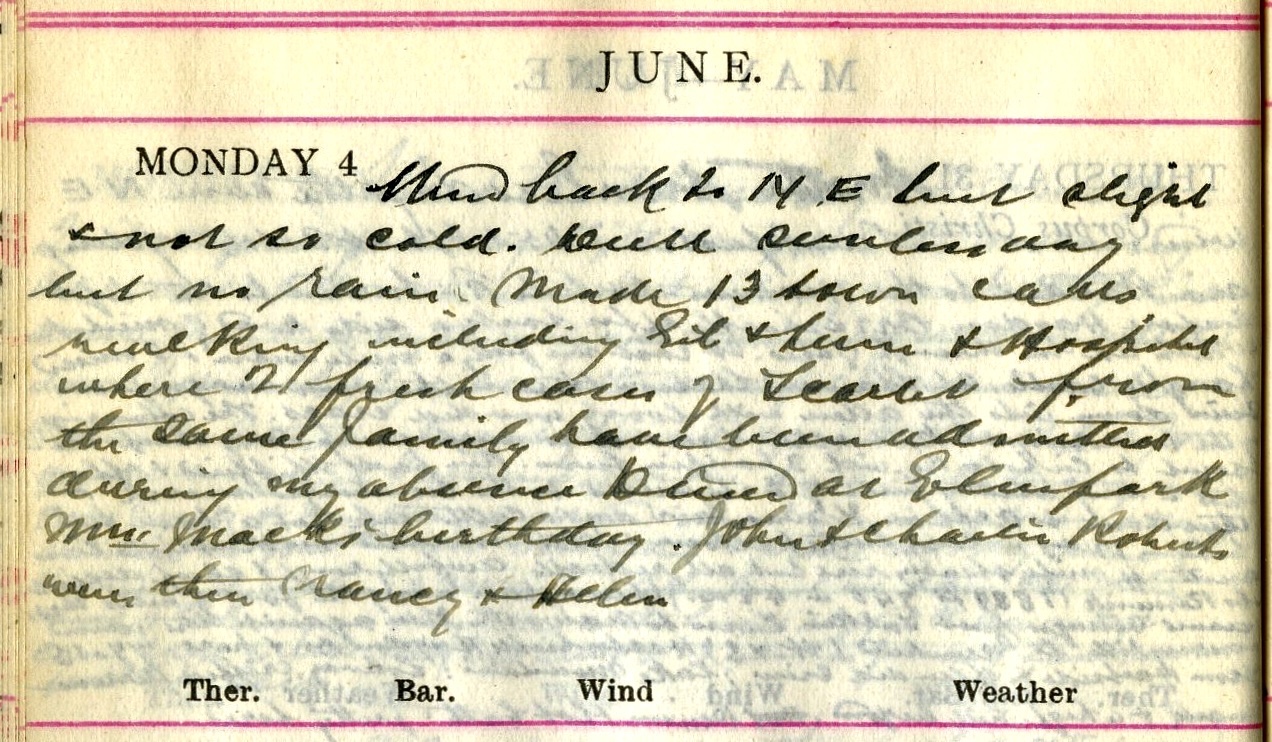 JUNE.
MONDAY 4 Wind back to N.E but slight
& not so cold. Dull sunless day
but no rain. Made 13 town calls
walking including & Hospital
where 2 fresh cases of Scarlet from
the same family have been admitted
during my absence Dined at Elmpark
Mrs. Mack's birthday. John & Charlie Roberts
were there Nancy & Helen
Ther. Bar. Wind Weather